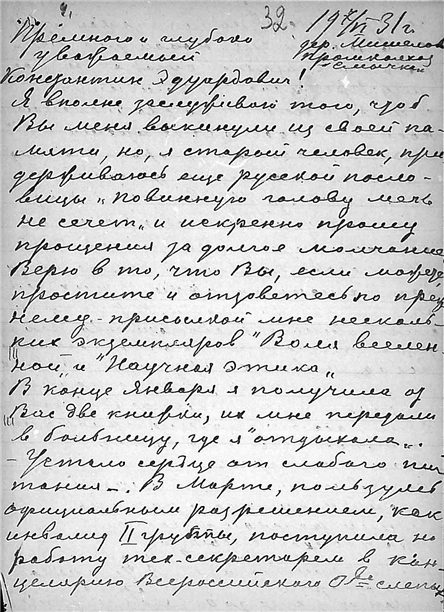 32.
19 7/VI 31 г.
Премного и глубоко
дер. Мишелов
уважаемый
промколхоз
Константин Эдуардович!
Я вполне заслуживаю того, чтоб
Вы меня выкинули из своей па-
мяти, но, я старой человек, при
держиваюсь еще русской посло-
вицы „повинную голову мечь
не сечет„ и искренно прошу
прощения за долгое молчание
Верю в то, что Вы, если можете
простите и отзоветесь по преж
нему - присылкой мне несколь-
ких экземпляров "Воля вселен-
ной„ и "Научная этика„
В конце Января я получила от
Вас две книжки, их мне передали
в больницу, где я "отдыхала„.
- Устало сердце от слабого пи-
тания -. В Марте, пользуясь
официальным разрешением, как
инвалид II группы, поступила на
работу тех-секретарем в кан-
целярию Всероссийского О-ва слепых